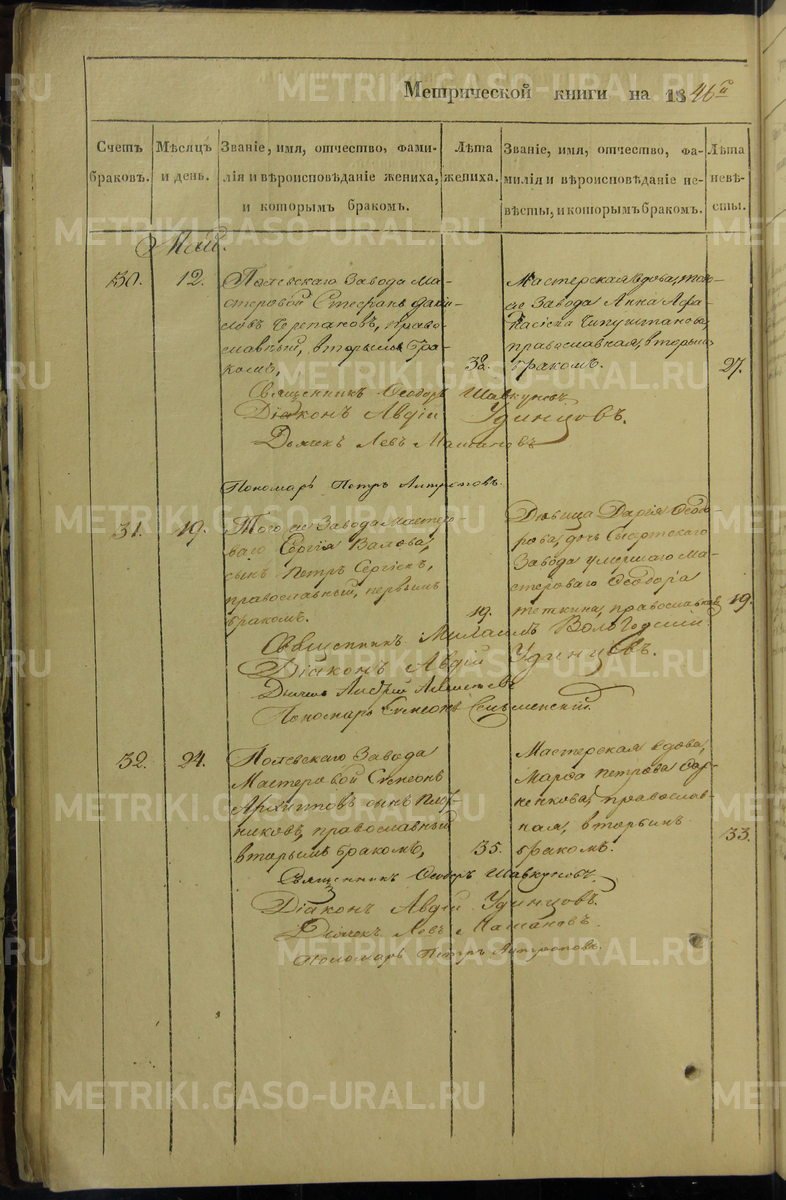 Метрической книги на 1846й
Счетъ браковъ.
Мѣсяцъ и день.
Званіе, имя, отчество, фами-
лія и вѣроисповѣданіе жениха,
и которымъ бракомъ.
Лѣта жениха.
Званіе, имя, отчество, фа-
милія и вѣроисповѣданіе не-
вѣсты, и которымъ бракомъ.
Лѣта невѣ-
сты.
Май.
30.
12.
Полевскаго Завода Ма-
стеровой Стефанъ Дани-
ловъ Черепановъ, право-
славный, вторымъ бра-
комъ,
38.
Мастерская вдова, того
же Завода Анна Афа-
насіева
православная, вторымъ
бракомъ.
27.
Священникъ Ѳеодоръ Шавкуновъ
Діаконъ Авдій Удинцовъ.
Дьячекъ Левъ
Пономарь Петръ Антроповъ.
31.
19.
Того же Завода мастеро-
ваго Сергія Валова,
сынъ Петръ Сергіевъ,
православный, первымъ
бракомъ.
19.
Дѣвица Дарія Ѳеодо-
рова, дочь Сысертскаго
Завода умершаго Ма-
стероваго Ѳеодора
православная
19.
Священникъ Михаилъ Вологодскій
Діаконъ Авдій Удинцевъ.
Дьячекъ Андрей
Пономарь Симеонъ
32.
24.
Полевскаго Завода
Мастеровой Симеонъ
Архиповъ сынъ Плот-
никовъ, православный
вторымъ бракомъ,
35.
Мастерская вдова,
Марфа Петрова
православ-
ная, вторымъ
бракомъ.
33.
Священникъ Ѳеодоръ Шавкуновъ.
Діаконъ Авдій Удинцовъ.
Дьячекъ Левъ
Пономарь Петръ Антроповъ.
METRIKI.GASO-URAL.RU